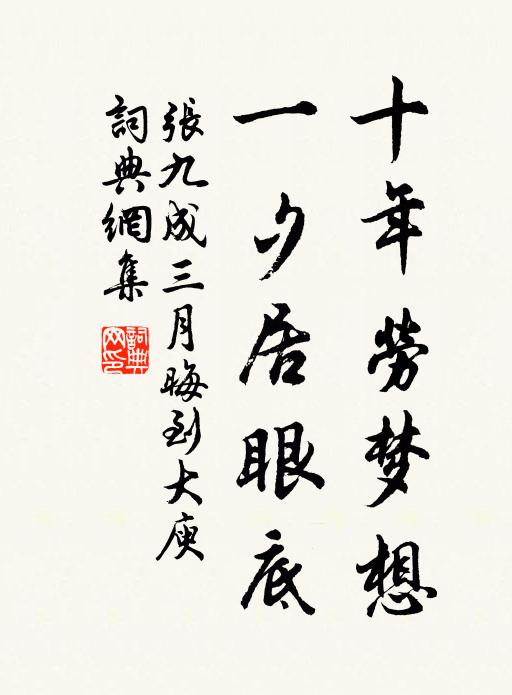 十年勞梦想
一夕居眼底
張九成三月晦到大庾
詞典網集
詞典网印